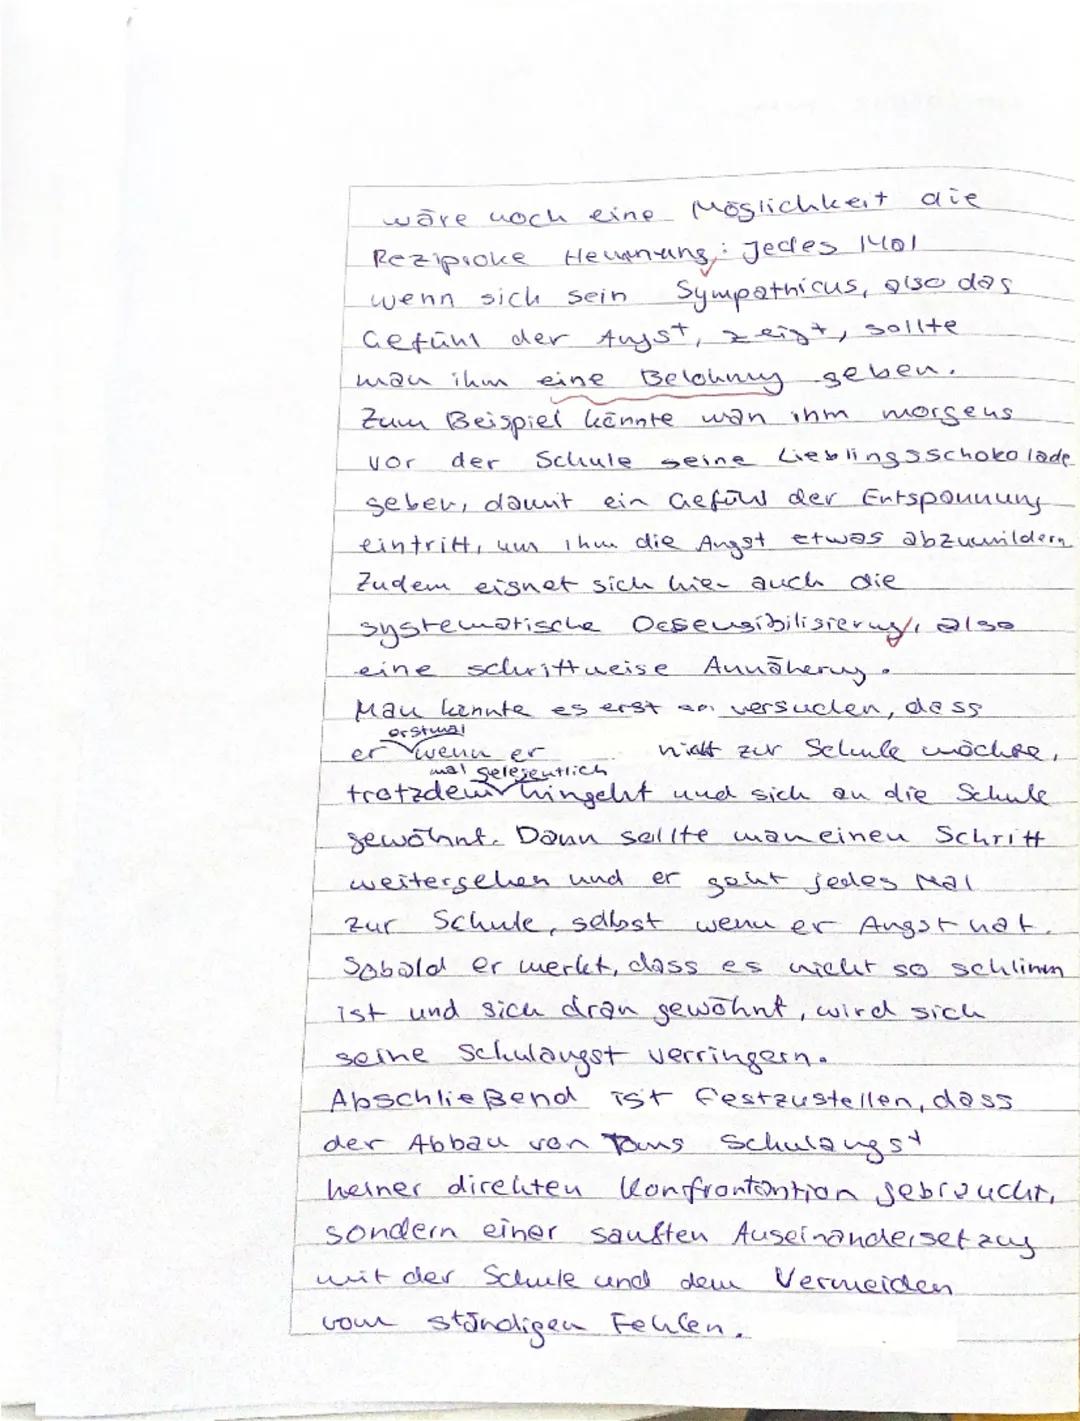 wäre noch eine Möglichkeit die
Reziproke Hemmung: Jedes Mal
wenn sich sein Sympathicus, also das
Gefühl der Angst, zeigt, sollte
man ihm eine Belohnung geben.
Zum Beispiel könnte man ihm morgens
vor der Schule seine Lieblingsschokolade
geben, damit ein Gefühl der Entspannung
eintritt, um ihm die Angst etwas abzumildern
Zudem eignet sich hier auch die
systematische Desensibilisierung, also
eine schrittweise Annäherung.
Man könnte es erst versuchen, dass
erstmal
er wenn er nicht zur Schule möchte,
mal gelegentlich
trotzdem hingeht und sich an die Schule
gewöhnt. Dann sollte man einen Schritt
weitergehen und er geht jedes Mal
zur Schule, selbst wenn er Angst hat.
Sobald er merkt, dass es nicht so schlimm
ist und sich dran gewöhnt, wird sich
seine Schulangst verringern.
Abschließend ist festzustellen, dass
der Abbau von Toms Schulangst
keiner direkten Konfrontantion gebraucht,
sondern einer sanften Auseinandersetzung
mit der Schule und dem Vermeiden
vom ständigen Fehlen.